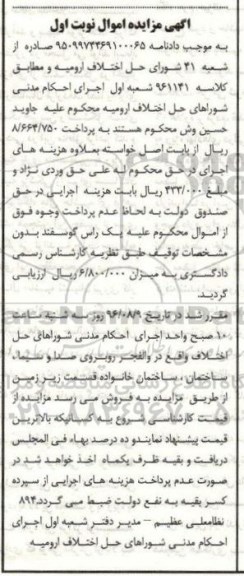 آگهی مزایده اموال نوبت اول
به موجب دادنامه ۹۵۰۹۹۷۴۴۶۹۱۰۰۰۶۵ صادره از
شعبه ۴۱ شورای حل اختلاف ارومیه و مطابق
کلاسه ۹۶۱۱۴۱ شعبه اول اجرای احکام مدنی
شوراهای حل اختلاف ارومیه محکوم علیه جاوید
حسین وش محکوم هستند به پرداخت ۸/۶۶۴/۷۵۰
ریال از بابت اصل خواسته بعلاوه هزینه های
اجرای در حق محکوم له علی حق وردی نژاد و
مبلغ ۴۳۳/۰۰۰ ریال بابت هزینه اجرایی در حق
صندوق دولت به لحاظ عدم پرداخت وجوه فوق
از اموال محکوم علیه یک راس گوسفند بدون
مشخصات توقیف طبق نظریه کارشناس رسمی
دادگستری به میزان ۶/۸۰۰/۰۰۰ ریال ارزیابی
گردید.
مقرر شد در تاریخ ۹۶/۰۸/۹ روز سه شنبه ساعت
۱۰ صبح واحد اجرای احکام مدنی شوراهای حل
اختلاف واقع در والفجر روبروی صدا و سیما،
ساختمان خانواده قسمت زیر زمین
از طریق مزایده به فروش می رسد مزایده از
قیمت کارشناسی شروع به کسانیکه بالاترین
قیمت پیشنهاد نمایند و ده درصد بهاء فی المجلس
دریافت و بقیه ظرف یکماه اخذ خواهد شد در
صورت عدم پرداخت هزینه های اجرایی از سپرده
کسر بقیه به نفع دولت ضبط می گردد.۸۹۴
نظامعلی عظیم – مدیر دفتر شعبه اول اجرای
احکام مدنی شوراهای حل اختلاف ارومیه